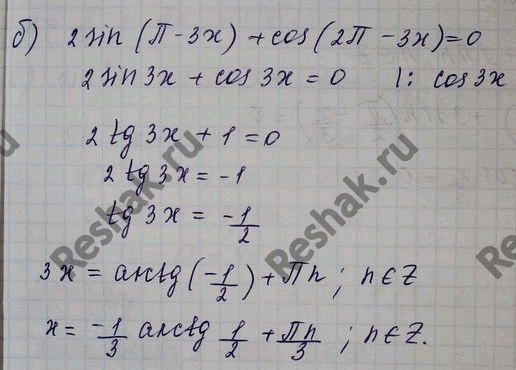 б) 2 sin (П - 3x) + cos (2П - 3x) = 0
2 sin 3x + cos 3x = 0 | : cos 3x
2 tg 3x + 1 = 0
2 tg 3x = -1
tg 3x = -1/2
3x = arctg (-1/2) + Пn ; n ∈ Z
x = -1/3 arctg 1/2 + Пn/3 ; n ∈ Z.
Reshak.ru
Reshak.ru
Reshak.ru